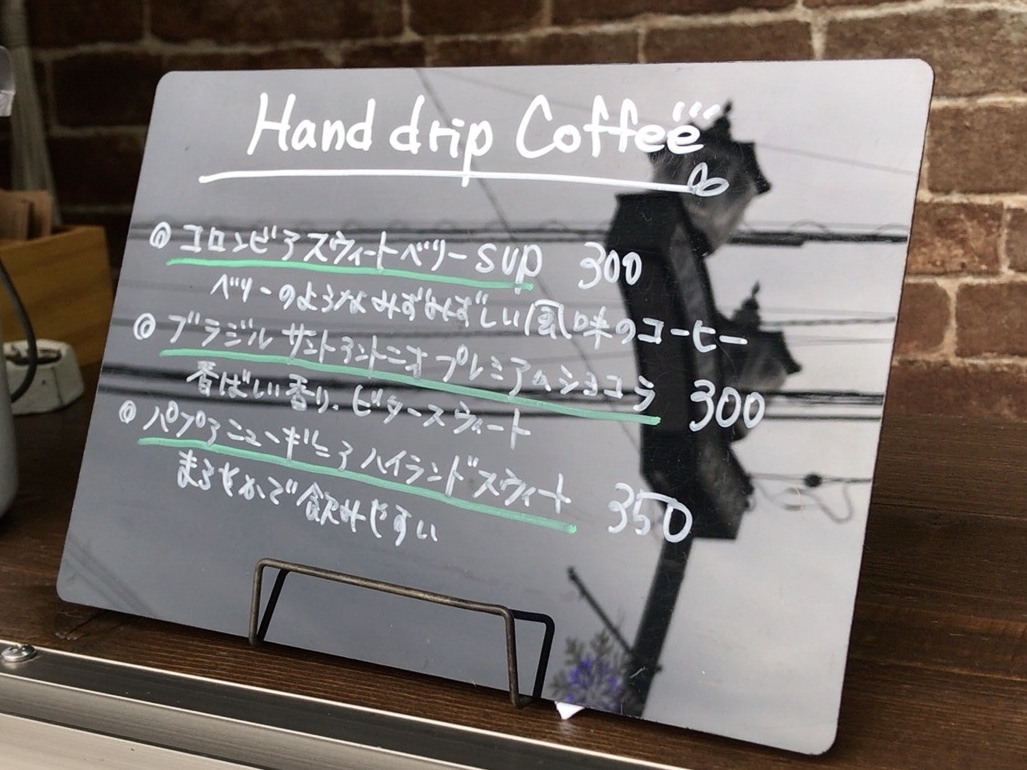 Hand drip Coffee
◎ コロンビア スウィートベリー sup 300
ベリーのようなみずみずしい風味のコーヒー
◎ ブラジル サントアントニオ プレミアムショコラ 300
香ばしい香り、ビタースウィート
◎ パプアニューギニア ハイランドスウィート 350
まろやかで飲みやすい